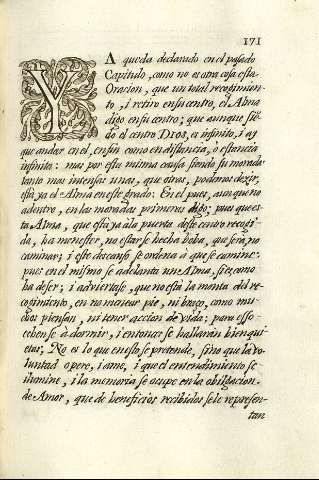 171
YA queda declarado en el pasado
Capitulo, como no es otra cosa esta
Oracion, que un total recogimien-
to, i retiro en su centro, el Alma
digo en su centro; que aunque siē-
do el centro Dios, a infinito, i ay
que andar en el, en fin como en distancia, ò estancia
infinita: mas por esta misma causa siendo su morada
tanto mas intensas unas, que otras, podemos dezir,
està ya el Alma en este grado: En el pues, aunque no
adentro, en las moradas primeras digo; pues que es-
ta Alma, que està ya à la puerta deste centro recogi-
da, ha menester, no estarse hecha boba, que sera, no
caminar; i este descanso se ordena à que se camine:
pues en el mismo se adelanta un Alma, si es, como
ha de ser; i adviertase, que no està la monta del re-
cogimiento, en no menear pie, ni braço, como mu-
chos piensan, ni tener accion de vida: para esso
echense à dormir, i entonces se hallaràn bien qui-
etas, No es lo que en esto se pretende, sino que la vo-
luntad opere, i ame, i que el entendimiento se
ilumine, i la memoria se ocupe en la obligacion
de Amor, que de beneficios recibidos se le represen-
tan